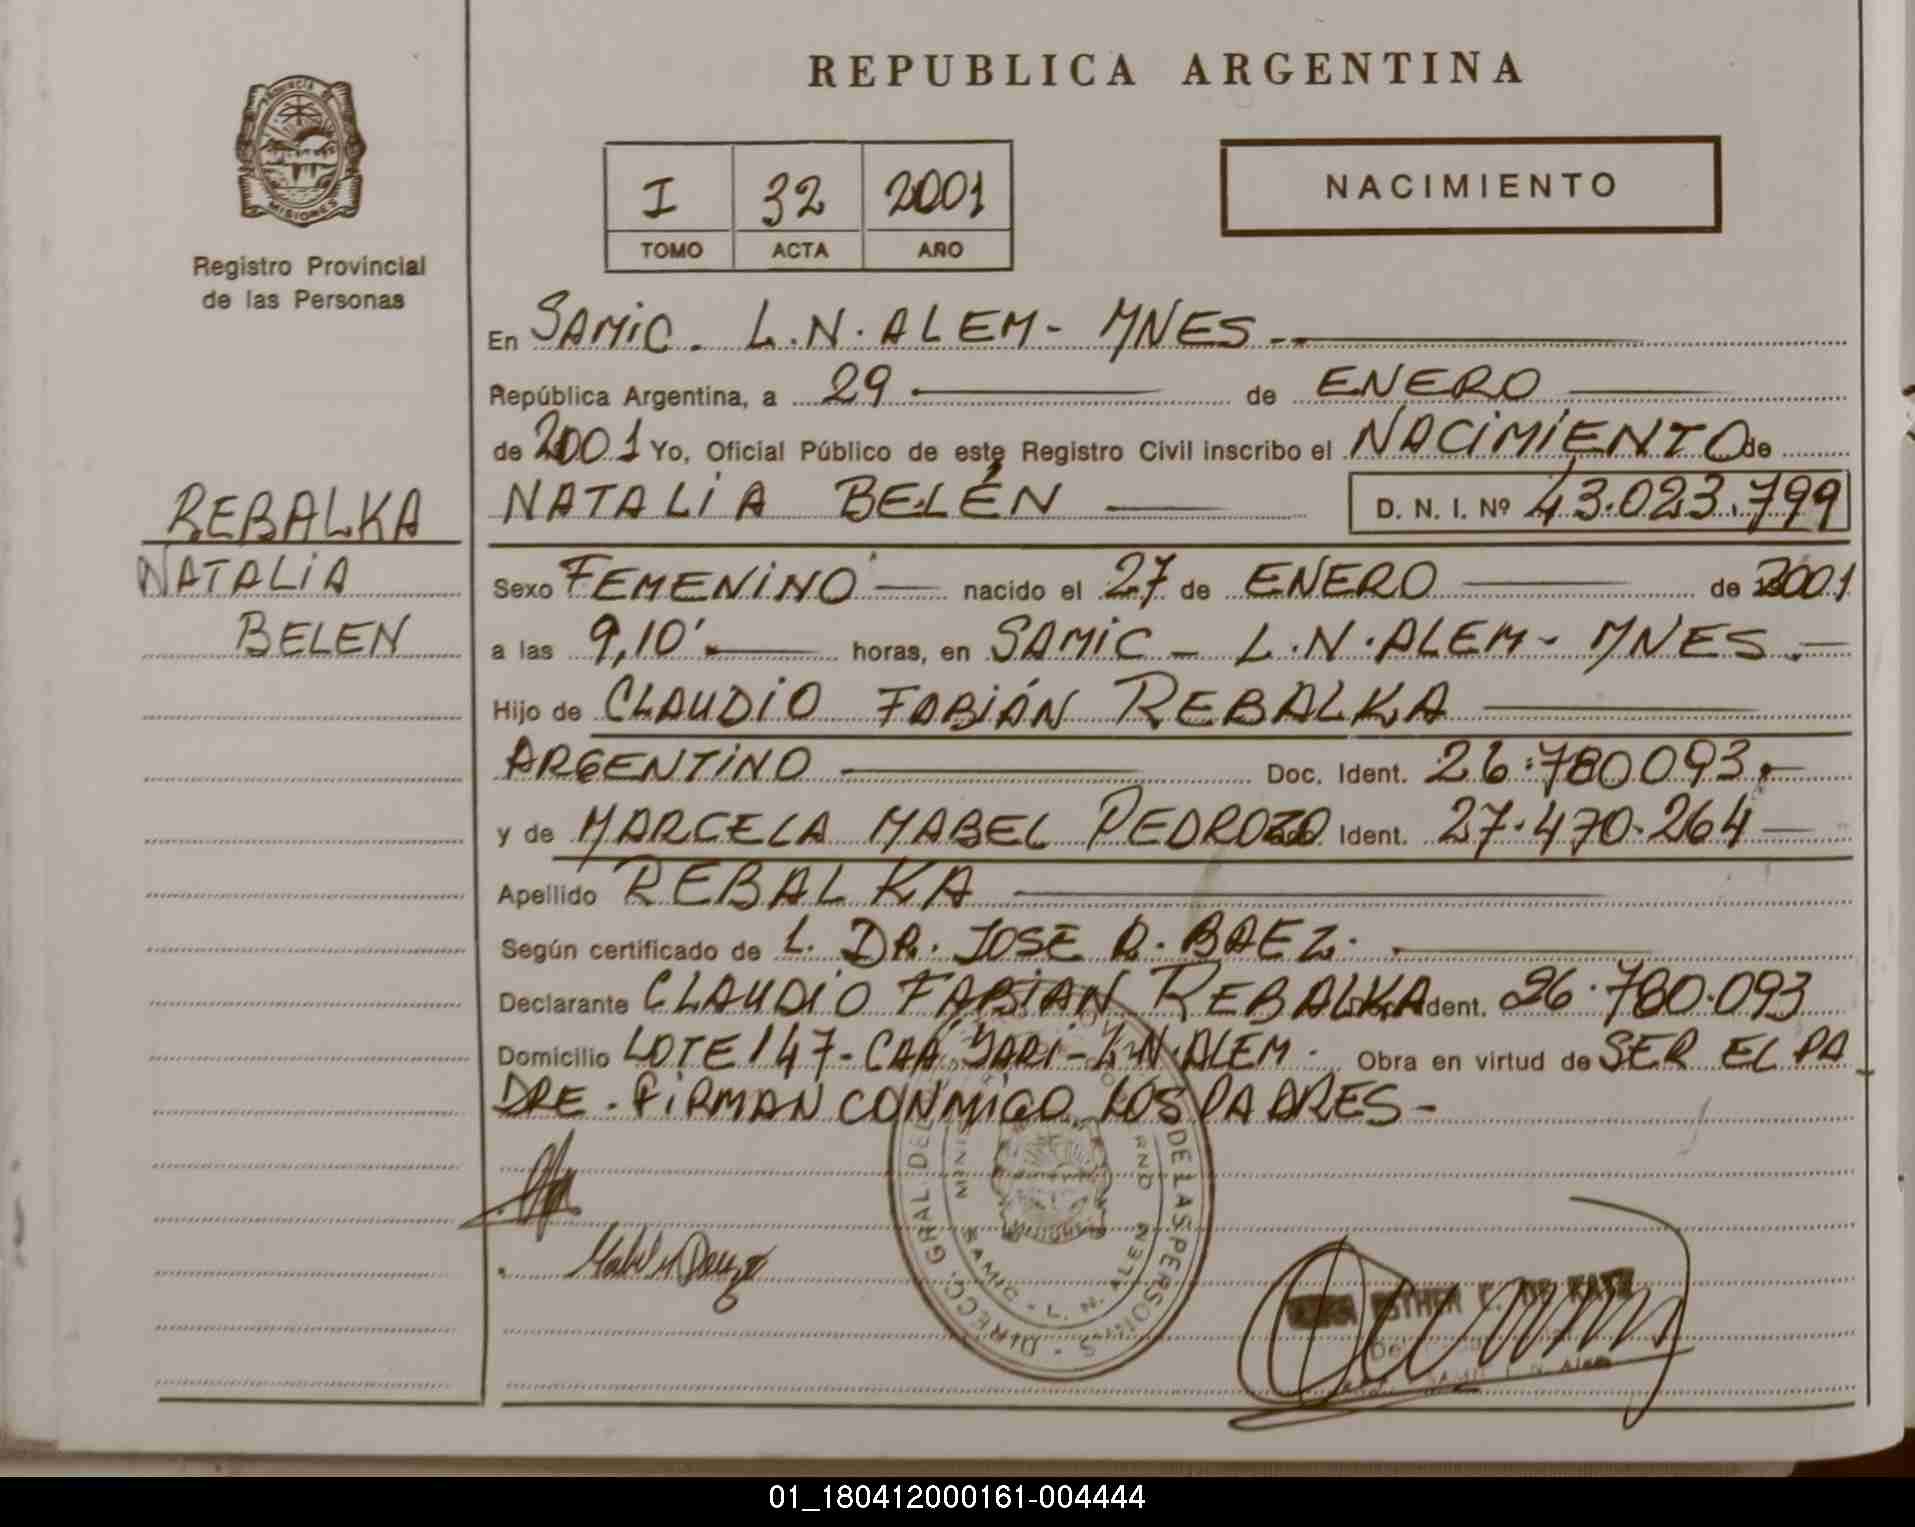 REPUBLICA ARGENTINA
PROVINCIA DE
MISIONES
Registro Provincial
de las Personas
I 32 2001
TOMO ACTA AÑO
NACIMIENTO
En SAMIC. L.N. ALEM - MNES
República Argentina, a 29 de ENERO
de 2001 Yo, Oficial Público de este Registro Civil inscribo el NACIMIENTO de
NATALIA BELÉN D. N. I. Nº 43.023.799
REBALKA
NATALIA
BELEN
Sexo FEMENINO nacido el 27 de ENERO de 2001
a las 9,10' horas, en SAMIC - L.N. ALEM - MNES.-
Hijo de CLAUDIO FABIÁN REBALKA
ARGENTINO Doc. Ident. 26.780093.-
y de MARCELA MABEL PEDROZO Ident. 27.470.264
Apellido REBALKA
Según certificado de L. DR. JOSE R. BAEZ.
Declarante CLAUDIO FABIAN REBALKA Ident. 26.780.093
Domicilio LOTE 147 - CAA YARI - L.N. ALEM. Obra en virtud de SER EL PA
DRE. FIRMAN CONMIGO LOS PADRES -
DIRECC. GRAL DE LAS PERSONAS
SAMIC - L. N. ALEM
ESTHER C. DE KATZ
L. N. Alem
01_180412000161-004444